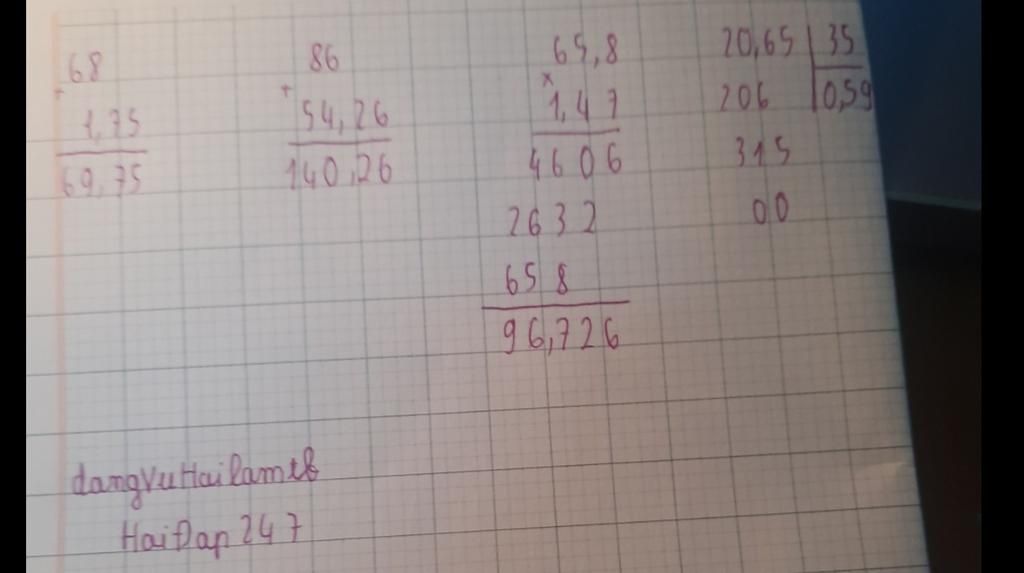 68
+
1,75
69,75
86
+
54,26
140,26
65,8
x
1,47
4606
2632
658
96,726
20,65 35
206 0,59
315
00
dangvuHailamtb
HoiĐap 247